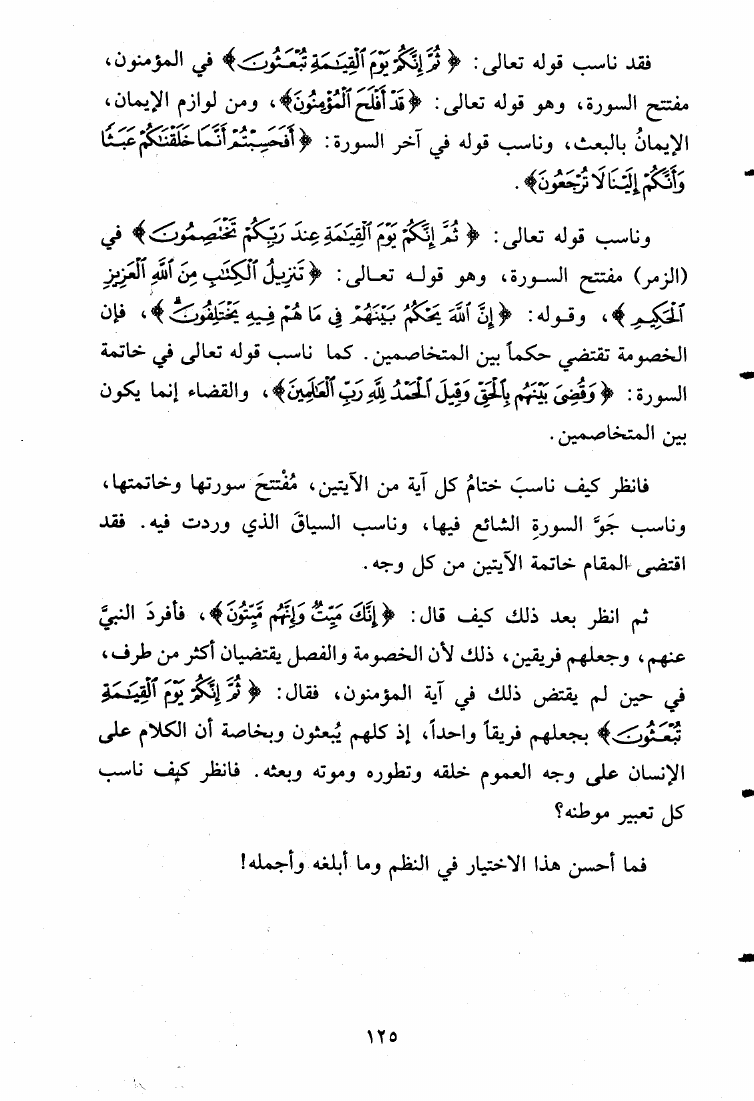 فقد ناسب قوله تعالى: ﴿ ثُمَّ إِنَّكُمْ يَوْمَ ٱلْقِيَٰمَةِ تُبْعَثُونَ ﴾ في المؤمنون،
مفتتح السورة، وهو قوله تعالى: ﴿ قَدْ أَفْلَحَ ٱلْمُؤْمِنُونَ﴾، ومن لوازم الإيمان،
الإيمانُ بالبعث، وناسب قوله في آخر السورة: ﴿ أَفَحَسِبْتُمْ أَنَّمَا خَلَقْنَٰكُمْ عَبَثًا
وَأَنَّكُمْ إِلَيْنَا لَا تُرْجَعُونَ﴾.
وناسب قوله تعالى: ﴿ ثُمَّ إِنَّكُمْ يَوْمَ ٱلْقِيَٰمَةِ عِندَ رَبِّكُمْ تَخْتَصِمُونَ ﴾ في
(الزمر) مفتتح السورة، وهو قوله تعالى: ﴿ تَنزِيلُ ٱلْكِتَٰبِ مِنَ ٱللَّهِ ٱلْعَزِيزِ
ٱلْحَكِيمِ ﴾، وقوله: ﴿ إِنَّ ٱللَّهَ يَحْكُمُ بَيْنَهُمْ فِى مَا هُمْ فِيهِ يَخْتَلِفُونَ ۗ ﴾، فإن
الخصومة تقتضي حكماً بين المتخاصمين. كما ناسب قوله تعالى في خاتمة
السورة: ﴿ وَقُضِىَ بَيْنَهُم بِٱلْحَقِّ وَقِيلَ ٱلْحَمْدُ لِلَّهِ رَبِّ ٱلْعَٰلَمِينَ﴾، والقضاء إنما يكون
بين المتخاصمين.
فانظر كيف ناسبَ ختامُ كل آية من الآيتين، مُفْتتحَ سورتها وخاتمتها،
وناسب جَوَّ السورةِ الشائع فيها، وناسب السياقَ الذي وردت فيه. فقد
اقتضى المقام خاتمة الآيتين من كل وجه.
ثم انظر بعد ذلك كيف قال: ﴿ إِنَّكَ مَيِّتٌ وَإِنَّهُم مَّيِّتُونَ ﴾، فأفردَ النبيَّ
عنهم، وجعلهم فريقين، ذلك لأن الخصومة والفصل يقتضيان أكثر من طرف،
في حين لم يقتض ذلك في آية المؤمنون، فقال: ﴿ ثُمَّ إِنَّكُمْ يَوْمَ ٱلْقِيَٰمَةِ
تُبْعَثُونَ ﴾ بجعلهم فريقاً واحداً، إذ كلهم يُبعثون وبخاصة أن الكلام على
الإنسان على وجه العموم خلقه وتطوره وموته وبعثه. فانظر كيف ناسب
كل تعبير موطنه؟
فما أحسن هذا الاختيار في النظم وما أبلغه وأجمله!
١٢٥